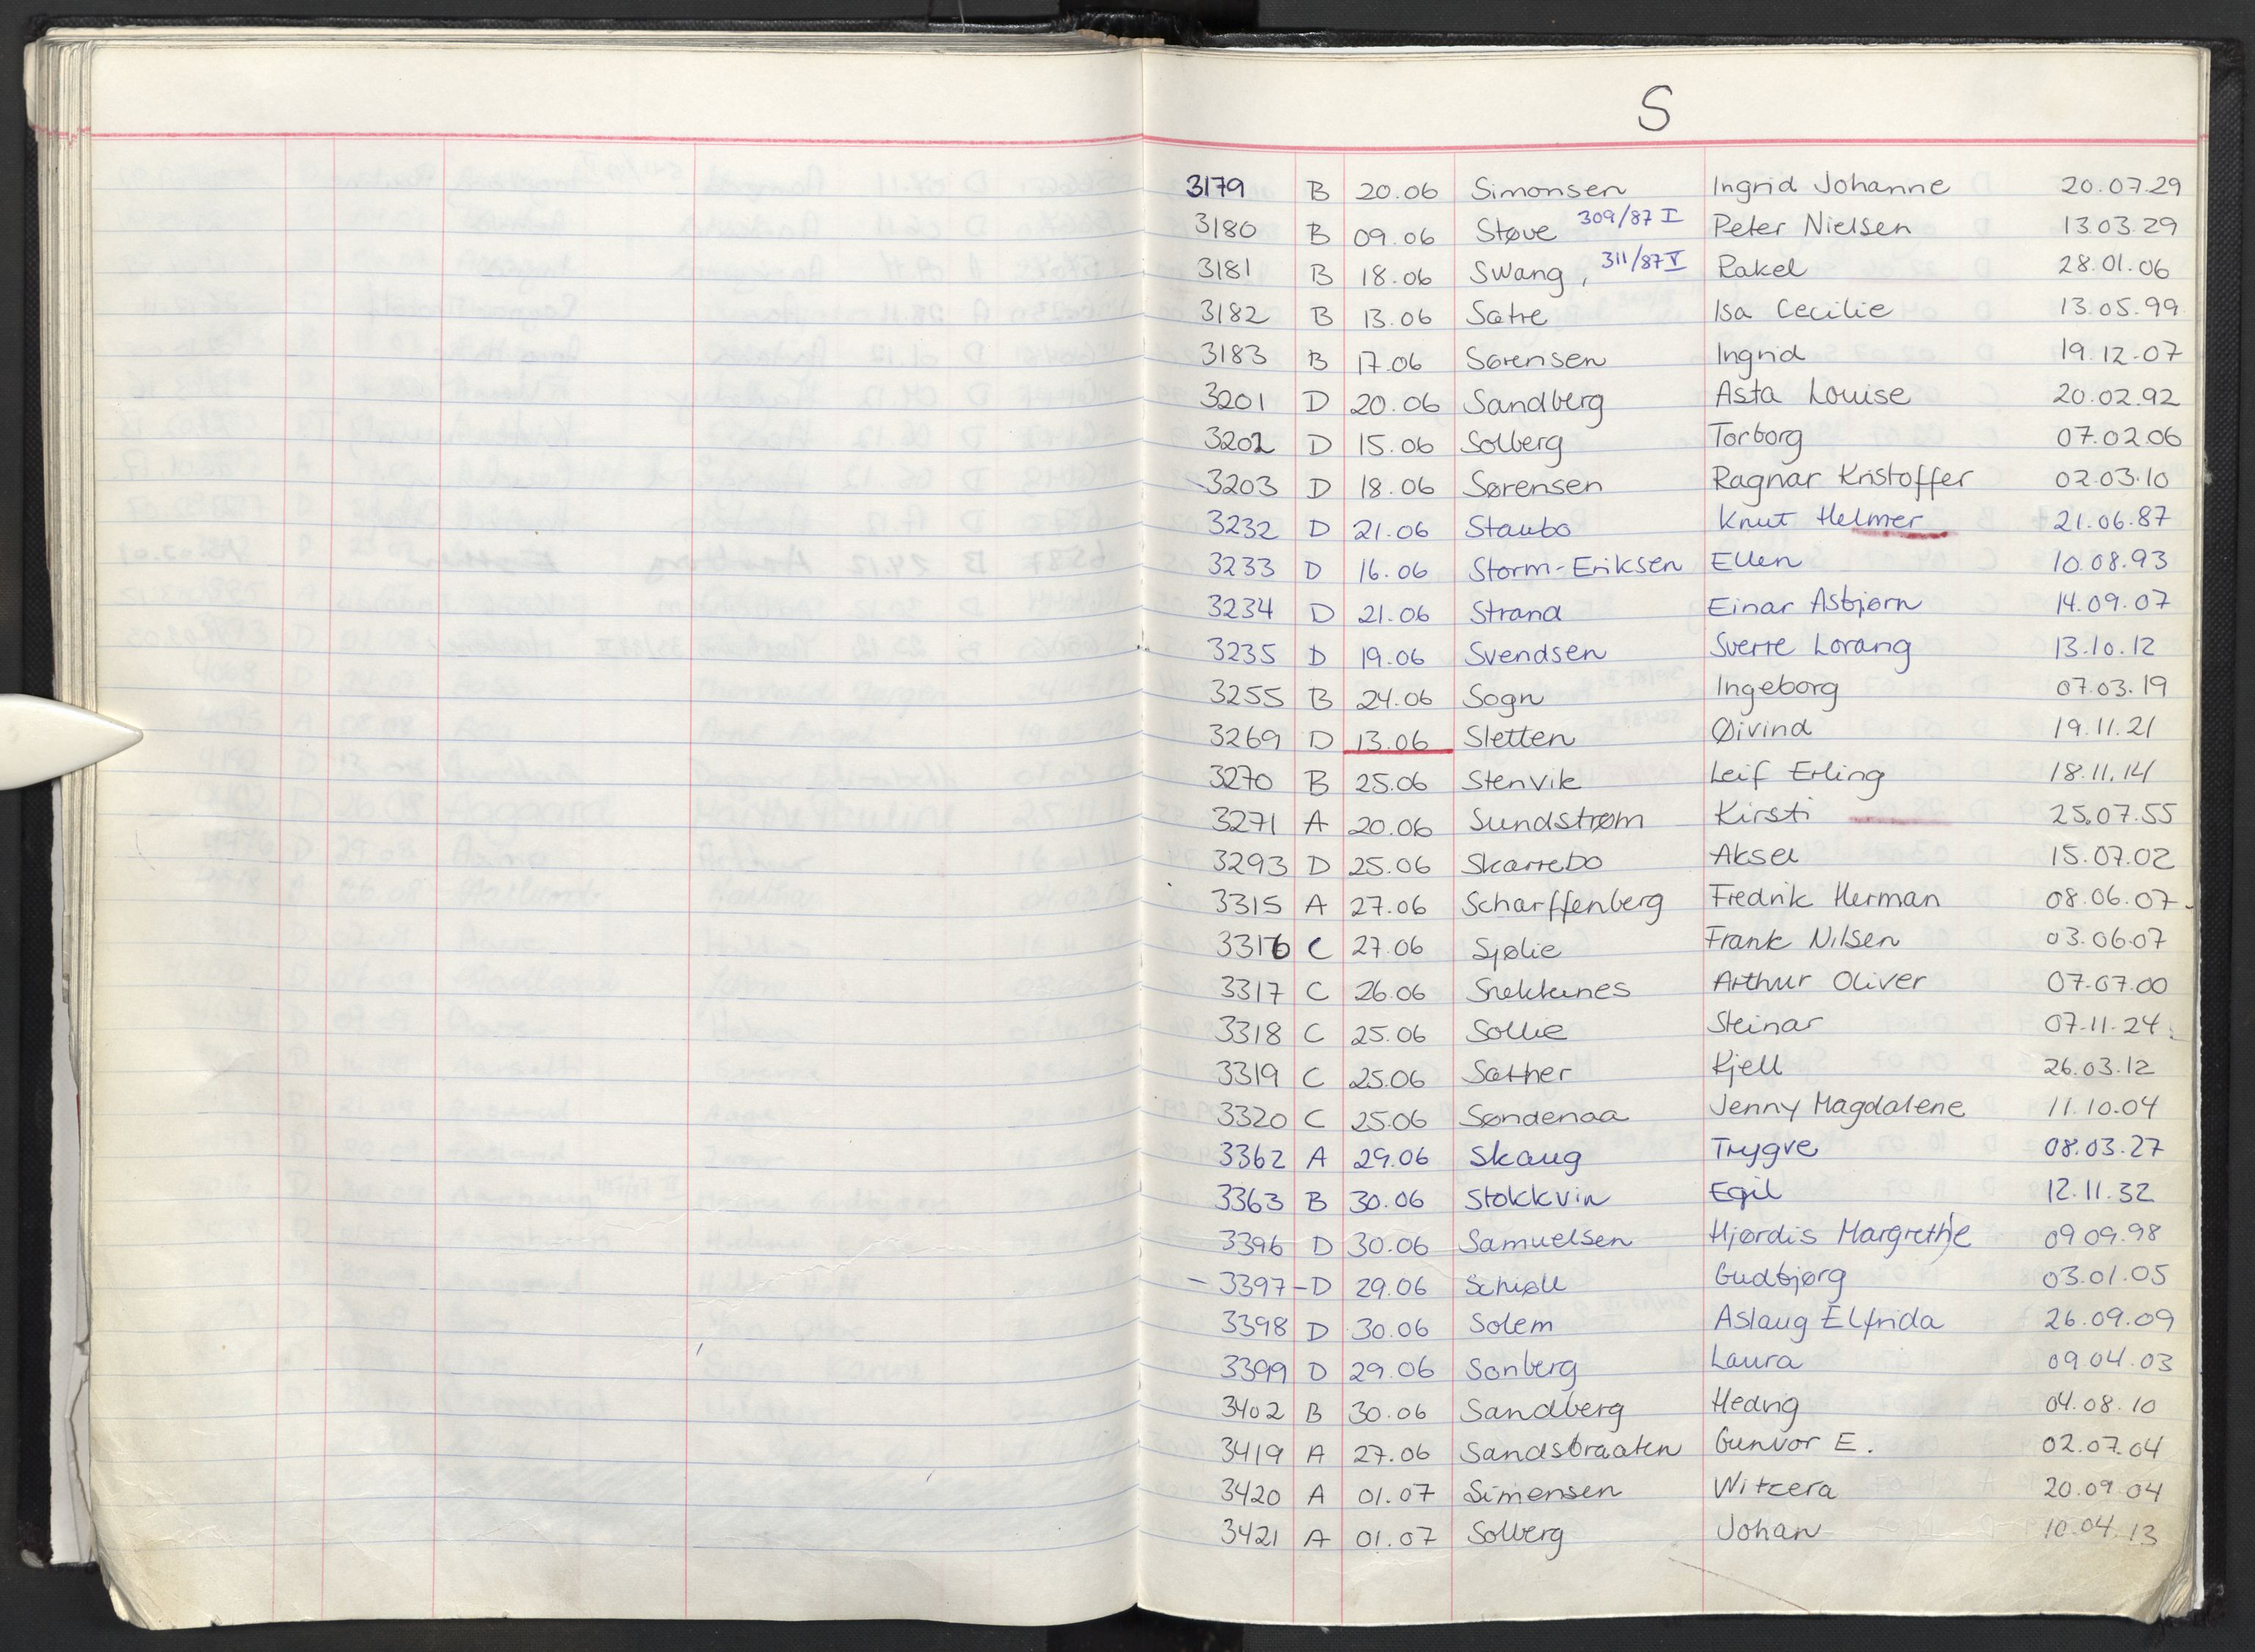 S
3179 B 20.06 Simonsen Ingrid Johanne 20.07.29
3180 B 09.06 Støve 309/87 I Peter Nielsen 13.03.29
3181 B 18.06 Swang, 311/87 V Rakel 28.01.06
3182 B 13.06 Sætre Isa Cecilie 13.05.99
3183 B 17.06 Sørensen Ingrid 19.12.07
3201 D 20.06 Sandberg Asta Louise 20.02.92
3202 D 15.06 Solberg Torborg 07.02.06
3203 D 18.06 Sørensen Ragnar Kristoffer 02.03.10
3232 D 21.06 Staubo Knut Helmer 21.06.87
3233 D 16.06 Storm-Eriksen Ellen 10.08.93
3234 D 21.06 Strand Einar Asbjørn 14.09.07
3235 D 19.06 Svendsen Sverre Lorang 13.10.12
3255 B 24.06 Sogn Ingeborg 07.03.19
3269 D 13.06 Sletten Øivind 19.11.21
3270 B 25.06 Stenvik Leif Erling 18.11.14
3271 A 20.06 Sundstrøm Kirsti 25.07.55
3293 D 25.06 Skarrebo Aksel 15.07.02
3315 A 27.06 Scharffenberg Fredrik Herman 08.06.07
3316 C 27.06 Sjølie Frank Nilsen 03.06.07
3317 C 26.06 Snekkenes Arthur Oliver 07.07.00
3318 C 25.06 Sollie Steinar 07.11.24
3319 C 25.06 Sæther Kjell 26.03.12
3320 C 25.06 Søndenaa Jenny Magdalene 11.10.04
3362 A 29.06 Skaug Trygve 08.03.27
3363 B 30.06 Stokkvin Egil 12.11.32
3396 D 30.06 Samuelsen Hjørdis Margrethe 09.09.98
- 3397 - D 29.06 Schiøll Gudbjørg 03.01.05
3398 D 30.06 Solem Aslaug Elfrida 26.09.09
3399 D 29.06 Sonberg Laura 09.04.03
3402 B 30.06 Sandberg Hedvig 04.08.10
3419 A 27.06 Sandsbraaten Gunvor E. 02.07.04
3420 A 01.07 Simensen Witzera 20.09.04
3421 A 01.07 Solberg Johan 10.04.13